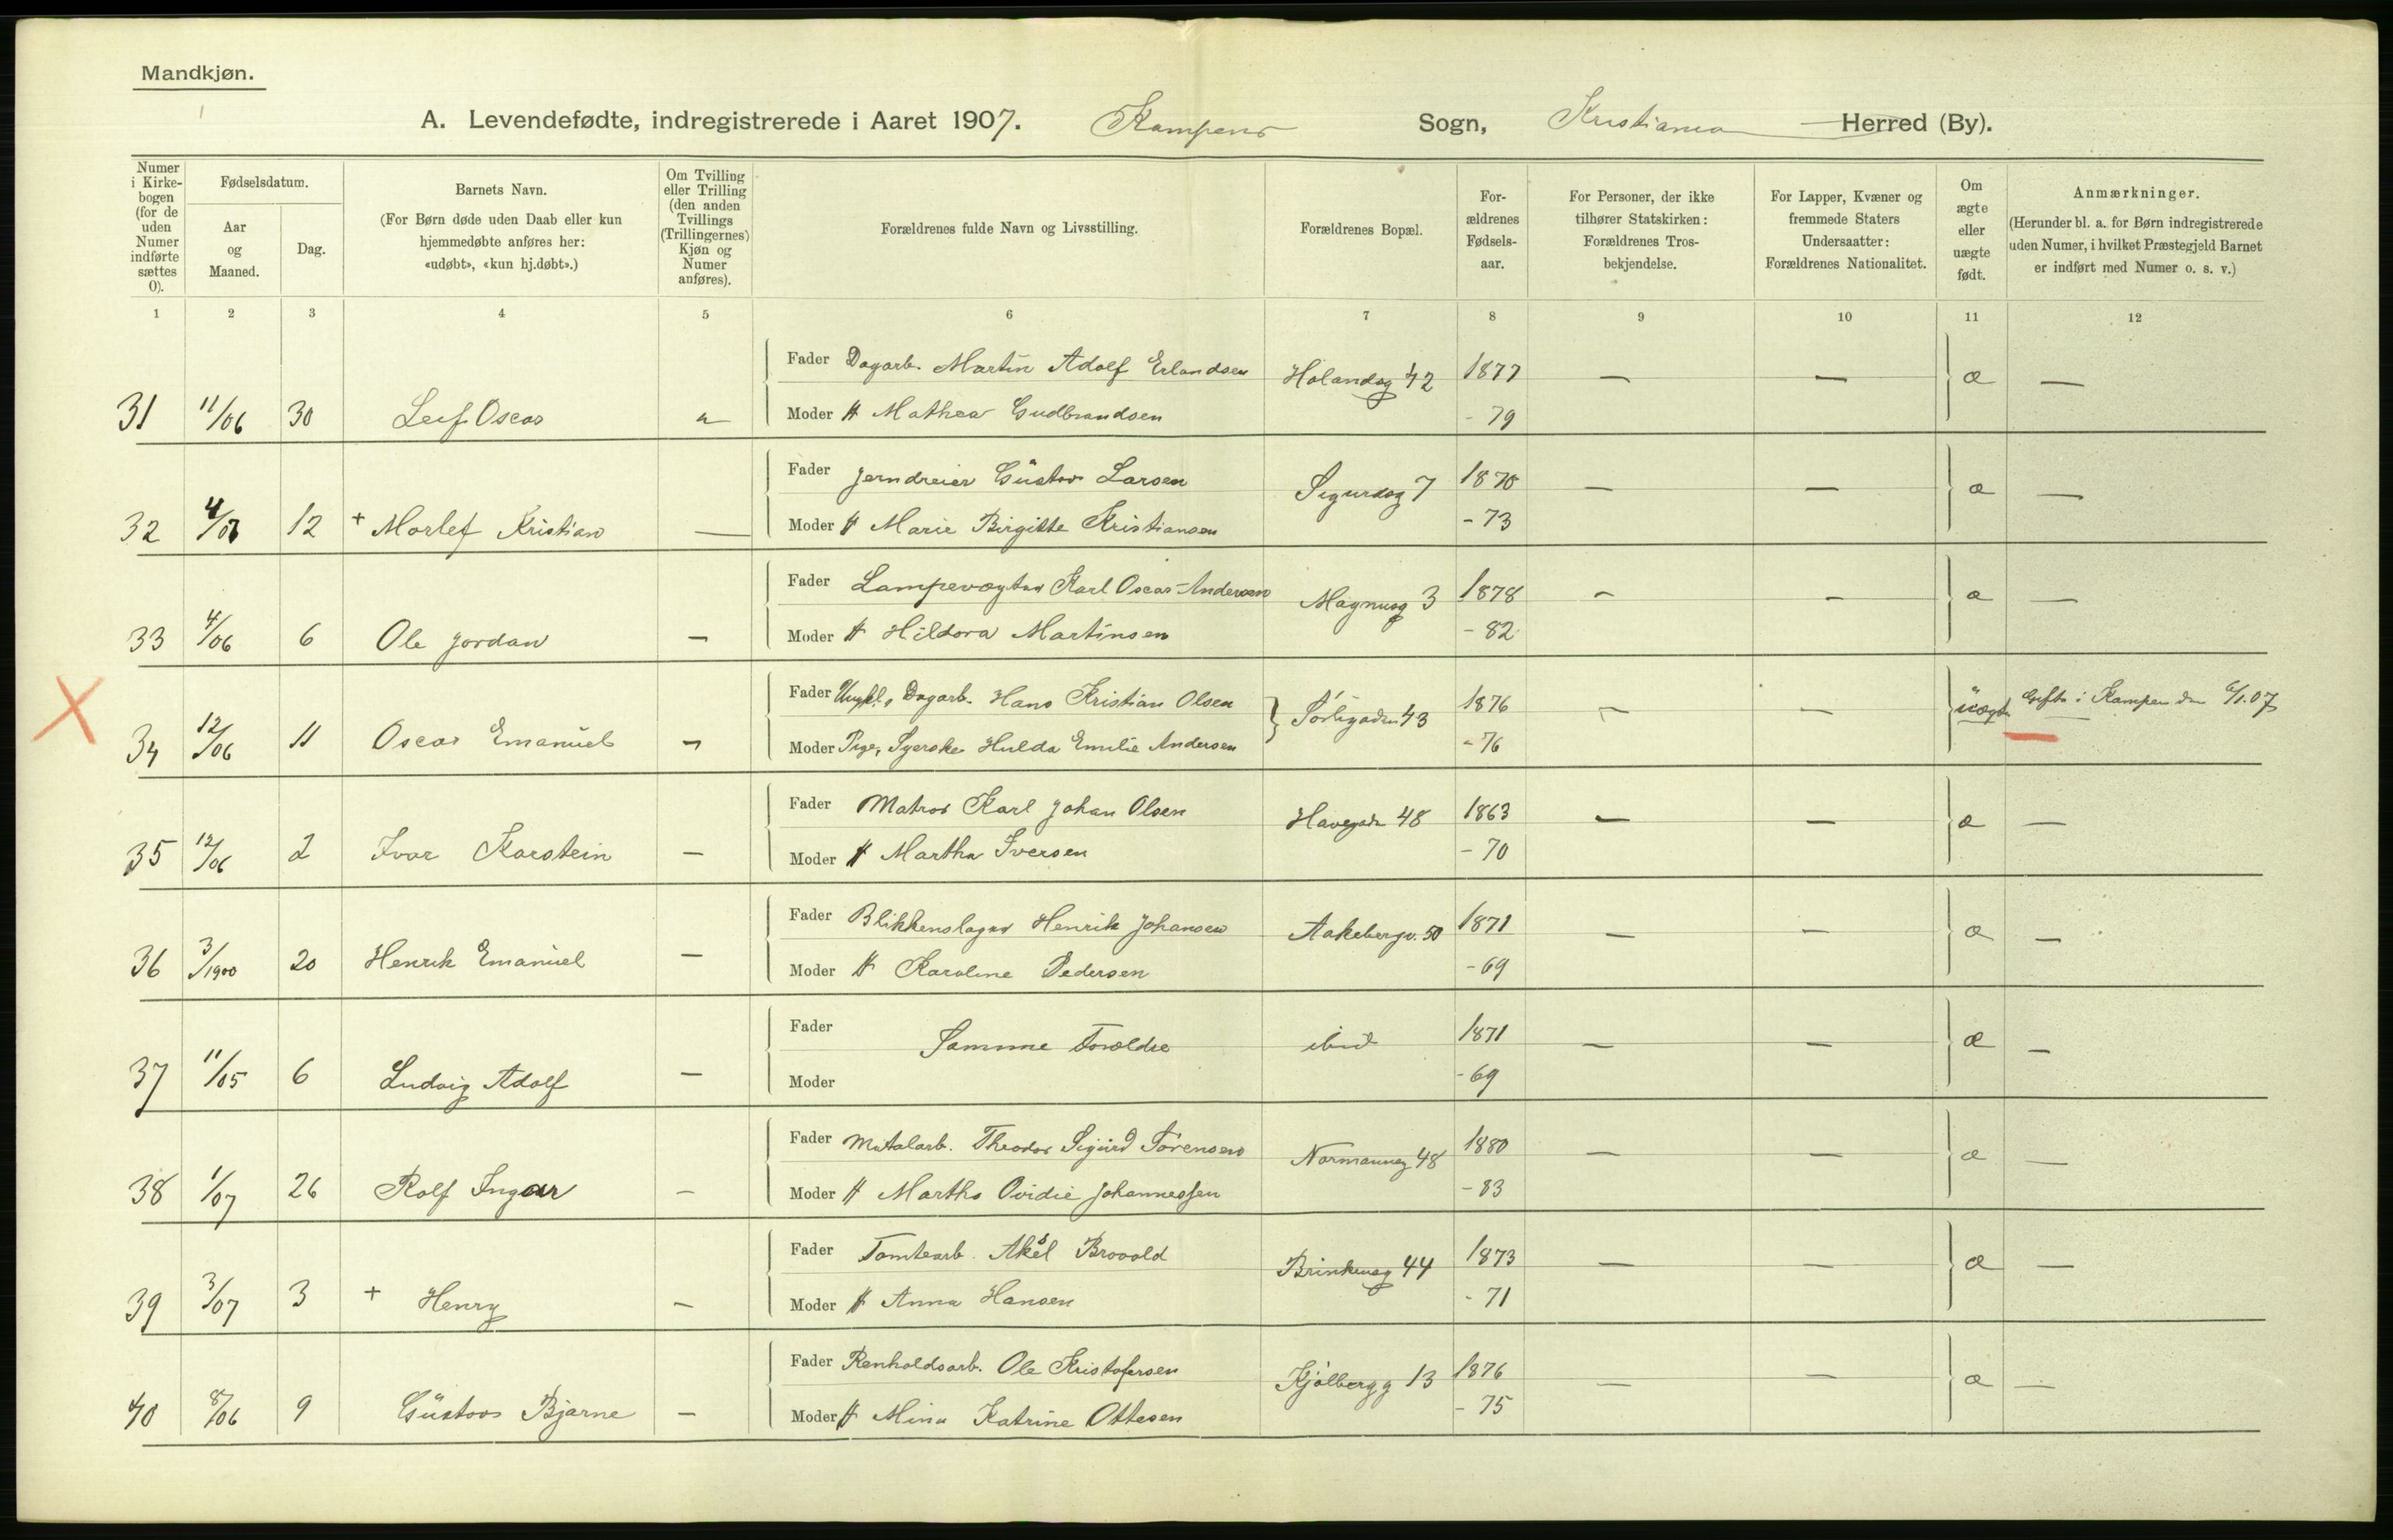 Mandkjøn.
A. Levendefødte, indregistrerede i Aaret 1907. Kampens Sogn, Kristiania Herred (By).
Numer i Kirkebogen (for de uden Numer indførte sættes 0).
Fødselsdatum.
Aar og Maaned.
Dag.
Barnets Navn.
(For Børn døde uden Daab eller kun hjemmedøbte anføres her: «udøbt», «kun hj.døbt».)
Om Tvilling eller Trilling (den anden Tvillings (Trillingernes) Kjøn og Numer anføres).
Forældrenes fulde Navn og Livsstilling.
Forældrenes Bopæl.
Forældrenes Fødselsaar.
For Personer, der ikke tilhører Statskirken: Forældrenes Trosbekjendelse.
For Lapper, Kvæner og fremmede Staters Undersaatter: Forældrenes Nationalitet.
Om ægte eller uægte født.
Anmærkninger.
(Herunder bl. a. for Børn indregistrerede uden Numer, i hvilket Præstegjeld Barnet er indført med Numer o. s. v.)
1 2 3 4 5 6 7 8 9 10 11 12
Fader Dagarb. Martin Adolf Erlandsen Hølandsg 42 1877 — — æ —
31 11/06 30 Leif Oscar Moder H Mathea Gudbrandsen - 79
Fader Jerndreier Gustav Larsen Sigurdsg 7 1870 — — æ —
32 4/07 12 + Morlef Kristian — Moder H Marie Birgitte Kristiansen - 73
Fader Lampevogter Karl Oscar Andersen Magnusg 3 1878 — — æ —
33 4/06 6 Ole Jordan — Moder H Hildora Martinsen - 82
Fader Ungk., Dagarb. Hans Kristian Olsen Sørligaden 43 1876 — — uægte Gifte i Kampen den 6/1.07
34 12/06 11 Oscar Emanuel — Moder Pige, Syerske Hulda Emilie Andersen - 76
Fader Matros Karl Johan Olsen Havegade 48 1863 — — æ —
35 12/06 2 Ivar Karstein — Moder H Martha Iversen - 70
Fader Blikkenslager Henrik Johansen Aakebergv. 50 1871 — — æ —
36 3/1900 20 Henrik Emanuel — Moder H Karoline Pedersen - 69
Fader Samme Forældre ibid 1871 — — æ —
37 11/05 6 Ludvig Adolf — Moder - 69
Fader Metalarb. Theodor Sigurd Sørensen Normannsg 48 1880 — — æ —
38 1/07 26 Rolf Ingar — Moder H Martha Ovidie Johannessen - 83
Fader Tomtearb. Aksel Brovold Brinkensg 44 1873 — — æ —
39 3/07 3 + Henry — Moder H Anna Hansen - 71
Fader Renholdsarb. Ole Kristofersen Kjølbergg 13 1876 — — æ —
40 8/06 9 Gustav Bjarne — Moder H Mina Katrine Ottesen - 75